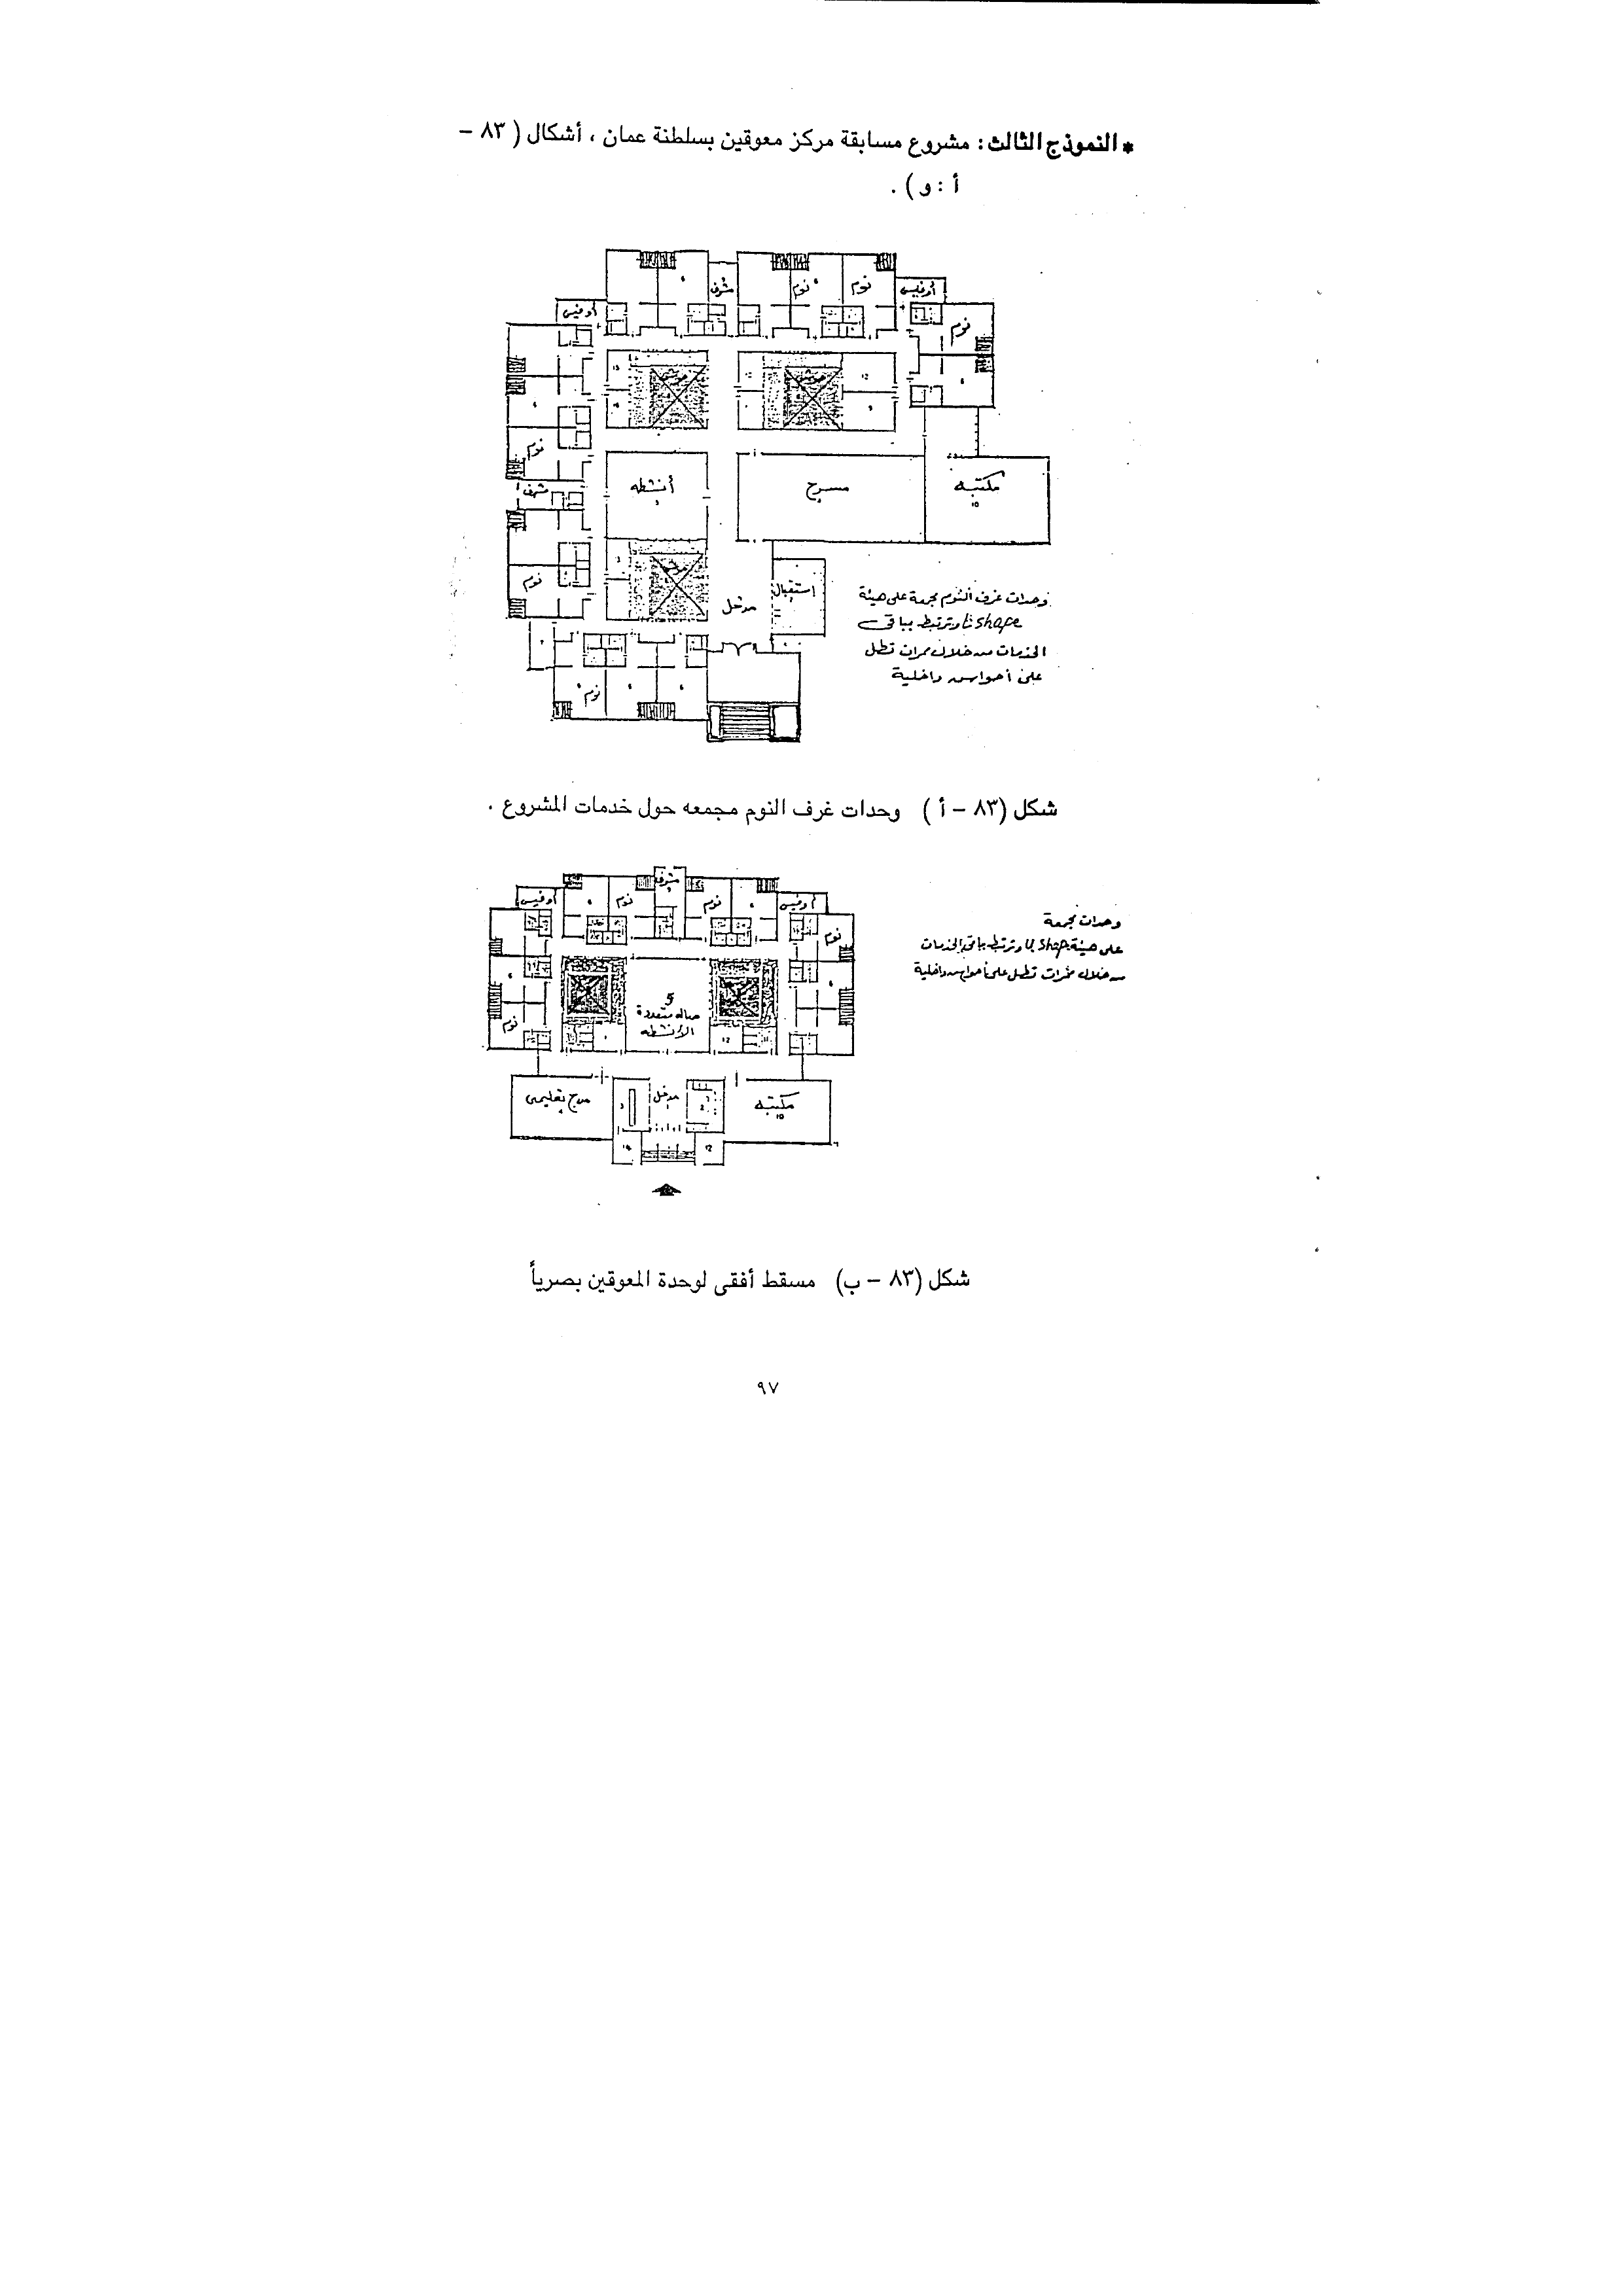 * النموذج الثالث: مشروع مسابقة مركز معوقين بسلطنة عمان ، أشكال ( ٨٣ –
أ : و ) .
مشرف
نوم
نوم
أوفيس
أوفيس
نوم
حوش
حوش
نوم
مشرف
أنشطه
مسرح
مكتبه
١٥
نوم
حوش
مدخل
إستقبال
نوم
وحدات غرف النوم مجمعة على هيئة
u shape وترتبط بباقى
الخدمات من خلال ممرات تطل
على أحواش داخلية
شكل (٨٣ – أ ) وحدات غرف النوم مجمعه حول خدمات المشروع .
مشرف
أوفيس
نوم
نوم
أوفيس
نوم
نوم
5
صاله متعددة
الأنشطه
مدرج تعليمى
مدخل
مكتبه
١٥
وحدات مجمعة
على هيئة u shape وترتبط بباقى الخدمات
من خلال ممرات تطل على أحواش داخلية
شكل (٨٣ – ب) مسقط أفقى لوحدة المعوقين بصرياً
٩٧